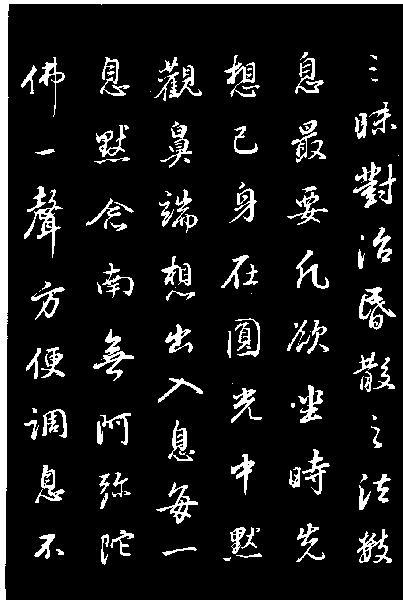 三昧對治昏散之法數
息最要凡欲坐時先
想己身在圓光中默
觀鼻端想出入息每一
息默念南無阿弥陀
佛一聲方便調息不